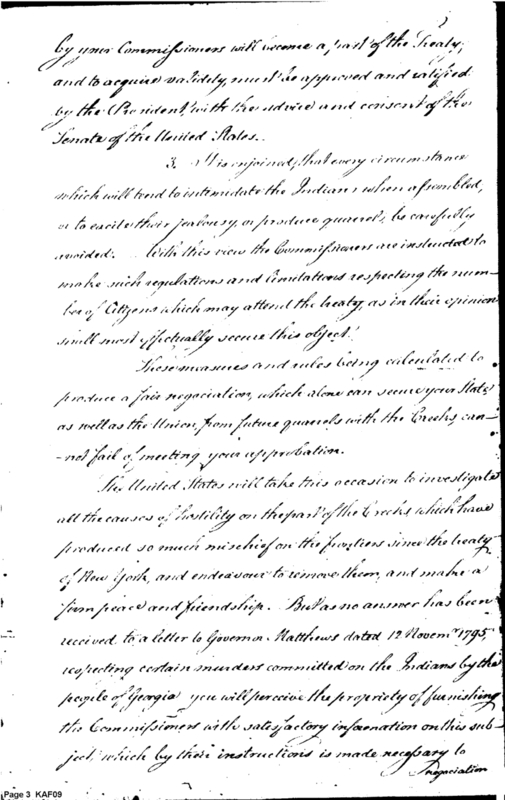 by your Commissioners will become a part of the Treaty;
and to acquire validity, must be approved and ratified
by the President, with the advice and consent of the
Senate of the United States.
3. It is enjoined, that every circumstance
which will tend to intimidate the Indians when assembled,
or to excite their jealousy, or produce quarrels, be carefully
avoided: With this view the Commissioners are instructed to
make such regulations and limitations respecting the num-
ber of Citizens which may attend the treaty, as in their opinion
shall most effectually secure this object.
These measures and rules being calculated to
produce a fair negociation, which alone can secure your State,
as well as the Union, from future quarrels with the Creeks, can-
-not fail of meeting your approbation.
The United States will take this occasion to investigate
all the causes of hostility on the part of the Creeks, which have
produced so much mischief on the frontiers since the treaty
of New York, and endeavour to remove them, and make a
firm peace and friendship. But as no answer has been
received to a letter to Governor Matthews dated 12 Novemr. 1795,
respecting certain murders committed on the Indians by the
people of Georgia you will perceive the propriety of furnishing
the Commissioners with satisfactory information on this sub-
ject, which by their instructions is made necessary to
negociation
Page 3 KAF09